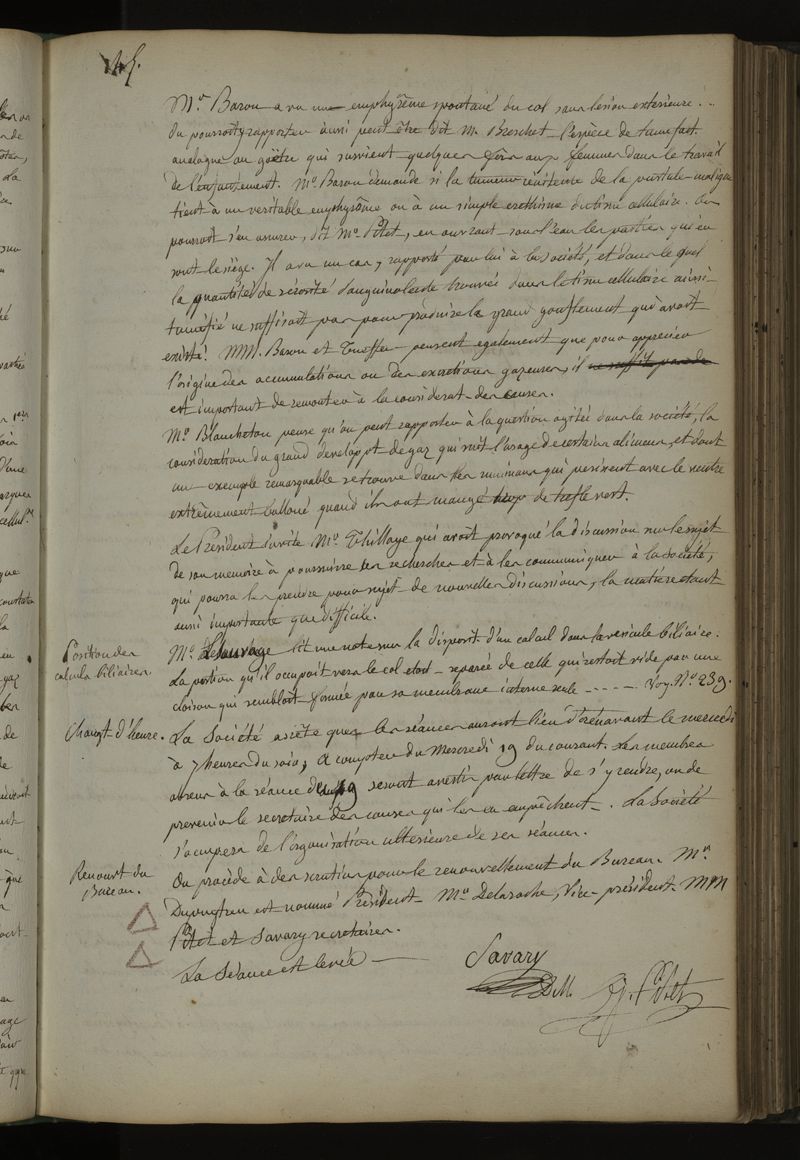 45.
Mr Baron a vu un emphysême spontané du col sans lésion extérieure ...
On pourroit y rapporter aussi peut être dit Mr Breschet l'espèce de tumefact.
analogue au goëtre qui survient quelques fois aux femmes dans le travail
de l'enfantement. Mr Baron demande si la tumeur rénitente de la pustule maligne
tient à un veritable emphysême ou à un simple erethisme du tissu cellulaire. On
pourroit s'en assurer, dit Mr Pétet, en ouvrant sous l'eau les parties qui en
sont le siège. Il a vu un cas, rapporté par lui à la société, et dans le quel
la quantité de sérosité sanguinolente trouvée dans le tissu cellulaire ainsi
tuméfié ne suffisoit pas pour produire le grand gonflement qui avoit
existé. MM. Baron et pensent egalement que pour apprécier
l'origine des accumulations ou des excretions gazeuses, il ne suffit pas de
est important de remonter à la considérat. des causes.
Mr Blancheton pense qu'on peut rapporter à la question agitée dans la société, la
consideration du grand developpt de gaz qui suit l'usage de certains alimens, et dont
un exemple remarquable se trouve dans les animaux qui perissent avec le ventre
extrêmement balloné quand ils ont mangé trop de trefle vert.
Le Président invite Mr Thillaye qui avoit provoqué la discussion sur le sujet
de son memoire à poursuivre ses recherches et à les communiquer à la société,
qui pourra les prendre pour sujet de nouvelles discussions, la matière étant
aussi importante que difficile.
Position des
calculs biliaires.
Mr Lesauvage lit une note sur la disposit. d'un calcul dans la vésicule biliaire.
La portion qu'il occupoit vers le col étoit séparée de celle qui restoit vide par une
cloison qui sembloit formée par sa membrane interne seule ----- Voy. No 239.
Changt d'heure.
La Société arrête que les séances auront lieu d'orénavant le mercredi
à 7 heures du soir, à compter du Mercredi 19 du courant. Les membres
à la séance du 19 seront avertis par lettre de s'y rendre, ou de
prevenir le secretaire des causes qui les en empêchent. La Société
s'occupera de l'organisation ulterieure de ses séances.
Renouvt du
Bureau.
On procède à des scrutins pour le renouvellement du Bureau. Mr
Dupuytren est nommé Président. Mr Delaroche, Vice-président. MM
Pétet et Savary secretaires.
La Séance est levée —
Savary
D.M.